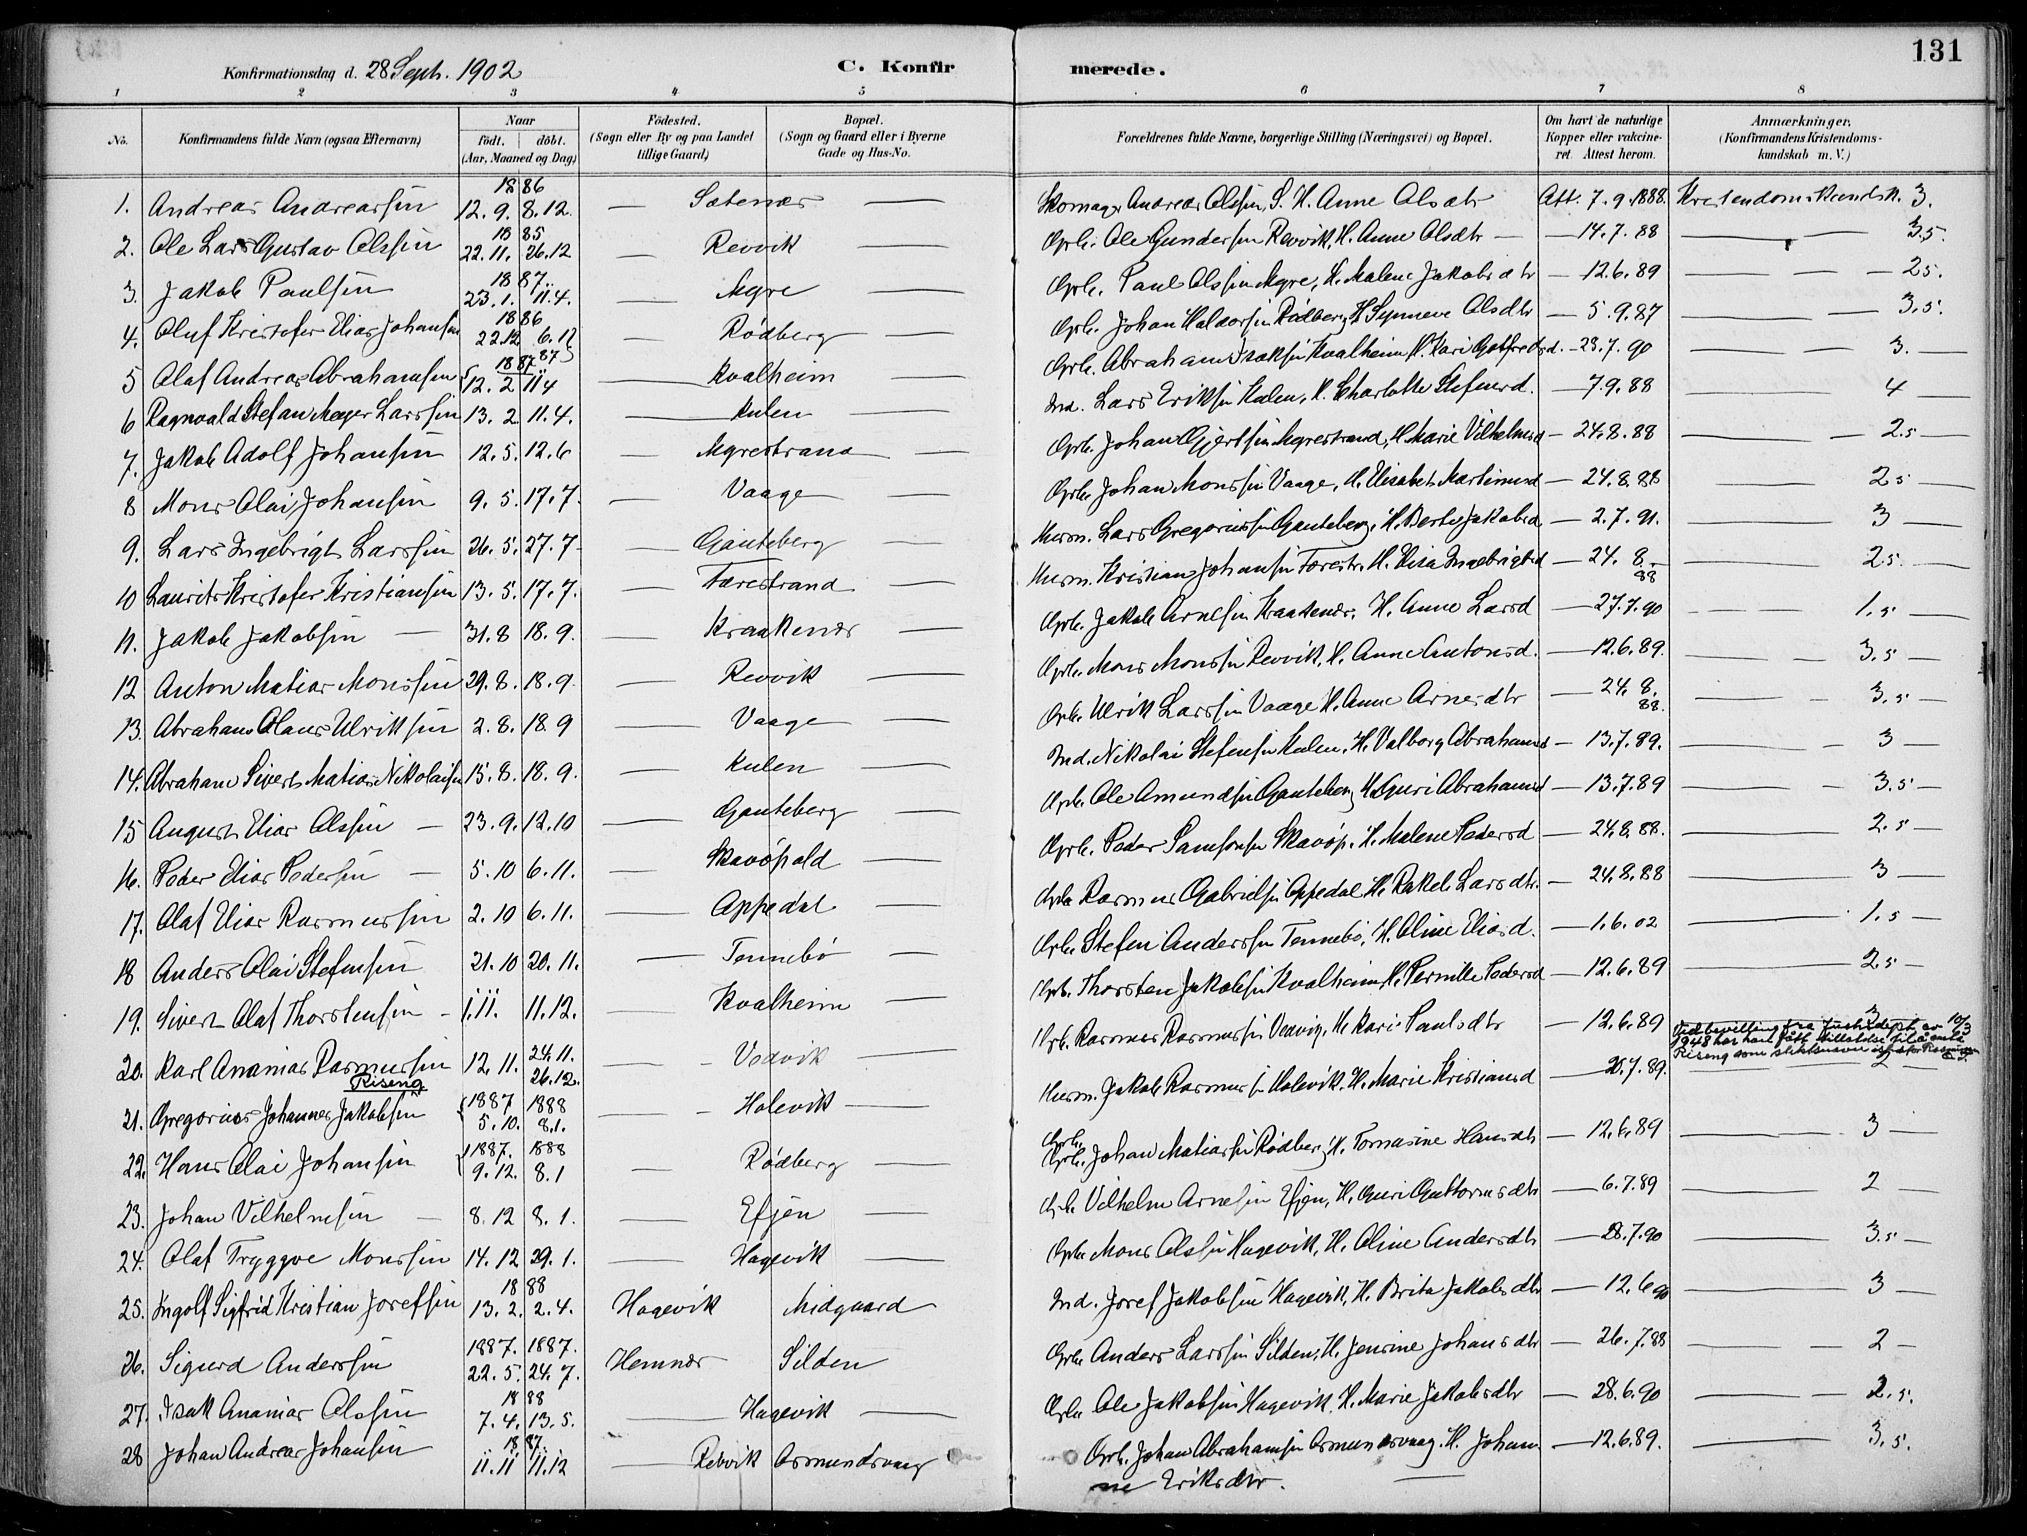 131
Konfirmationsdag d. 28 Sept. 1902
C. Konfirmerede.
1 2 3 4 5 6 7 8
No. | Konfirmandens fulde Navn (ogsaa Efternavn) | Naar födt. | döbt. (Aar, Maaned og Dag) | Födested. (Sogn eller By og paa Landet tillige Gaard) | Bopæl. (Sogn og Gaard eller i Byerne Gade og Hus-No. | Forældrenes fulde Navne, borgerlige Stilling (Næringsvei) og Bopæl. | Om havt de naturlige Kopper eller vakcineret Attest herom. | Anmærkninger. (Konfirmandens Kristendomskundskab m. V.)
1886
1. Andreas Andreassen 12.9. 8.12. — Sætenæs — Skomager Andreas Olssen, S. H. Anne Olsdtr Att. 7.9.1888. Kristendomskundsk. 3.
1885
2. Ole Lars Gustav Olssen 22.11. 26.12 — Revvik — Grb. Ole Gundersen Revvik, H. Anne Olsdtr — 14.7.88 — 3.5.
1887
3. Jakob Paulsen 23.1. 11.4. — Myre — Grb. Paul Olssen Myre, H. Malene Jakobsdtr — 12.6.89 — 2.5.
1886
4. Oluf Kristofer Elias Johansen 22.12 6.11 87 — Rødberg — Grb. Johan Haldorsen Rødberg H. Synneve Olsdtr — 5.9.87 — 3.5.
1887
5 Olaf Andreas Abrahamsen 12.2 11.4 — Kvalheim — Grb. Abraham Isaksen Kvalheim H. Kari Gotfredsd. — 23.7.90 — 3.
6 Ragnvald Stefan Meyer Larssen 13.2. 11.4. — Kulen — Ind. Lars Eriksen Kulen, H. Charlotte Stefensd. — 7.9.88 — 4
7. Jakob Adolf Johansen 12.5. 12.6 — Myrestrand — Grb. Johan Gjertsen Myrestrand, H. Marie Vilhelmsd — 24.8.88 — 2.5
8 Mons Olai Johansen 9.5. 17.7. — Vaage — Grb. Johan Monssen Vaage, H. Elisabet Martinusd — 24.8.88 — 2.5
9. Lars Ingebrigt Larssen 26.5. 27.7 — Gauteberg — Husm. Lars Gregoriussen Gauteberg, H. Berte Jakobsd — 2.7.91. — 3
10 Laurits Kristofer Kristiansen 13.5. 17.7. — Færestrand — Husm. Kristian Johansen Færestr. H. Elisa Ingebrigtsd — 24.8. 88 — 2.5.
11. Jakob Jakobsen — 31.8 18.9. — Kraakenæs — Grb. Jakob Arnesen Kraakenæs. H. Anne Larsd — 27.7.90 — 1.5
12 Anton Matias Monssen 29.8. 18.9. — Revvik — Grb. Mons Monssen Revvik, H. Anne Antonsd. — 12.6.89. — 3.5
13. Abraham Olaus Ulriksen 2.8. 18.9 — Vaage — Grb. Ulrik Larssen Vaage H. Anne Arnesdtr — 24.8. 88. — 3.5
14. Abraham Sivert Matias Nikolaisen 15.8. 18.9. — Kulen — Ind. Nikolai Stefensen Kulen, H. Valborg Abrahamsd — 13.7.89. — 3
15 August Elias Olssen — 23.9. 12.10 — Gauteberg — Grb. Ole Amundsen Gauteberg H. Guri Abrahamsd — 13.7.89 — 3.5
16. Peder Elias Pedersen — 5.10 6.11. — Skavøpold — Grb. Peder Samsonsen Skavøp. H. Malene Pedersd — 24.8.88. — 2.5
17. Olaf Elias Rasmussen 2.10 6.11. — Oppedal — Grb. Rasmus Gabrielsen Oppedal H. Rakel Larsdtr. — 24.8.88 — 3
18 Anders Olai Stefensen 21.10 20.11. — Tennebø — Grb. Stefen Anderssen Tennebø, H. Oline Eliasd. — 1.6.02 — 1.5
19. Sivert Olaf Thorstensen — 1.11. 11.12. — Kvalheim — Grb. Thorsten Jakobsen Kvalheim, H. Pernille Pedersd — 12.6.89 — 2.5
20. Karl Ananias Rasmussen 12.11. 24.11. 26.12. — Vedvik — Grb. Rasmus Rasmussen Vedvig, H. Kari Paulsdtr — 12.6.89 3
Riseng
Ved bevilling fra Justisdept. av 10/3
1948 har han fått tillatelse til å anta
Riseng som slektsnavn
21. Gregorius Johannes Jakobsen 1887 5.10. 1888 8.1. — Holevik — Husm. Jakob Rasmussen Holevik. H. Marie Kristiansd — 20.7.89. — 2
22. Hans Olai Johansen 1887. 9.12. 1888 8.1 — Rødberg — Grb. Johan Matiassen Rødberg H. Tomasine Hansdtr — 12.6.89 — 3
23. Johan Vilhelmsen — 8.12 8.1. — Efjen — Grb. Vilhelm Arnesen Efjen, H. Guri Guttormsdtr — 6.7.89 — 2
24. Olaf Tryggve Monssen 14.12 29.1. — Hagevik — Grb. Mons Olssen Hagevik, H. Oline Andersdtr — 28.7.90 — 3.5
1888
25. Ingolf Sigfrid Kristian Josefsen 13.2. 2.4. Hagevik Midgaard Ind. Josef Jakobsen Hagevik, H. Brita Jakobsdtr — 12.6.90 — 3
1887. 1887.
26. Sigurd Anderssen 22.5. 24.7. Hennøs Silden Grb. Anders Larssen Silden, H. Jensine Johansdtr — 26.7.88 — 2
1888
27. Isak Ananias Olssen 7.4. 13.5. — Hagevik — Grb. Ole Jakobsen Hagevik. H. Marie Jakobsdtr — 28.6.90 — 2.5.
1887.
28 Johan Andreas Johansen 11.11 11.12 — Rebvik Osmundsvaag Grb. Johan Abrahamsen Osmundsvaag. H. Johan — 12.6.89. — 3.5.
ne Eriksdtr.